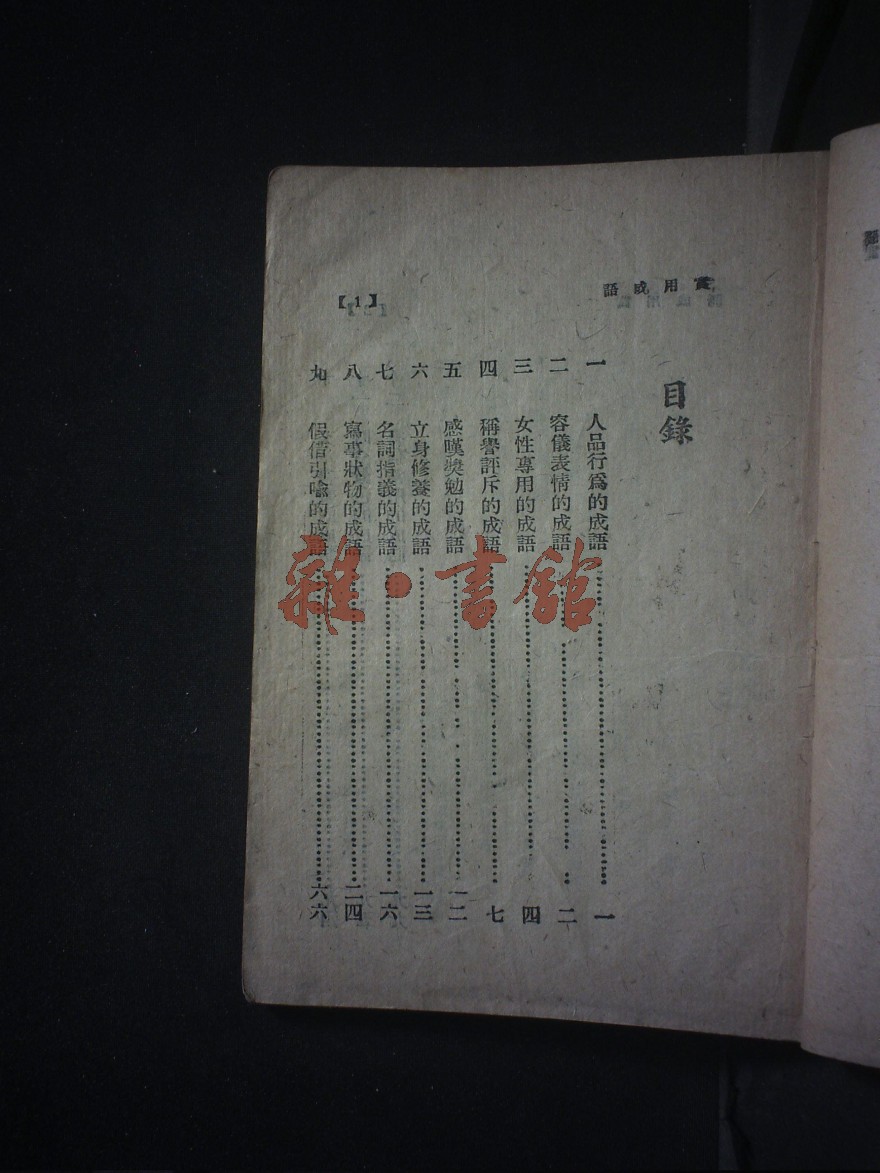 實用成語
【1】
目錄
一 人品行為的成語 一
二 容儀表情的成語 二
三 女性專用的成語 四
四 稱譽評斥的成語 七
五 感嘆獎勉的成語 一二
六 立身修養的成語 一三
七 名詞指義的成語 一六
八 寫事狀物的成語 二四
九 假借引喻的成語 六六
雜·書館